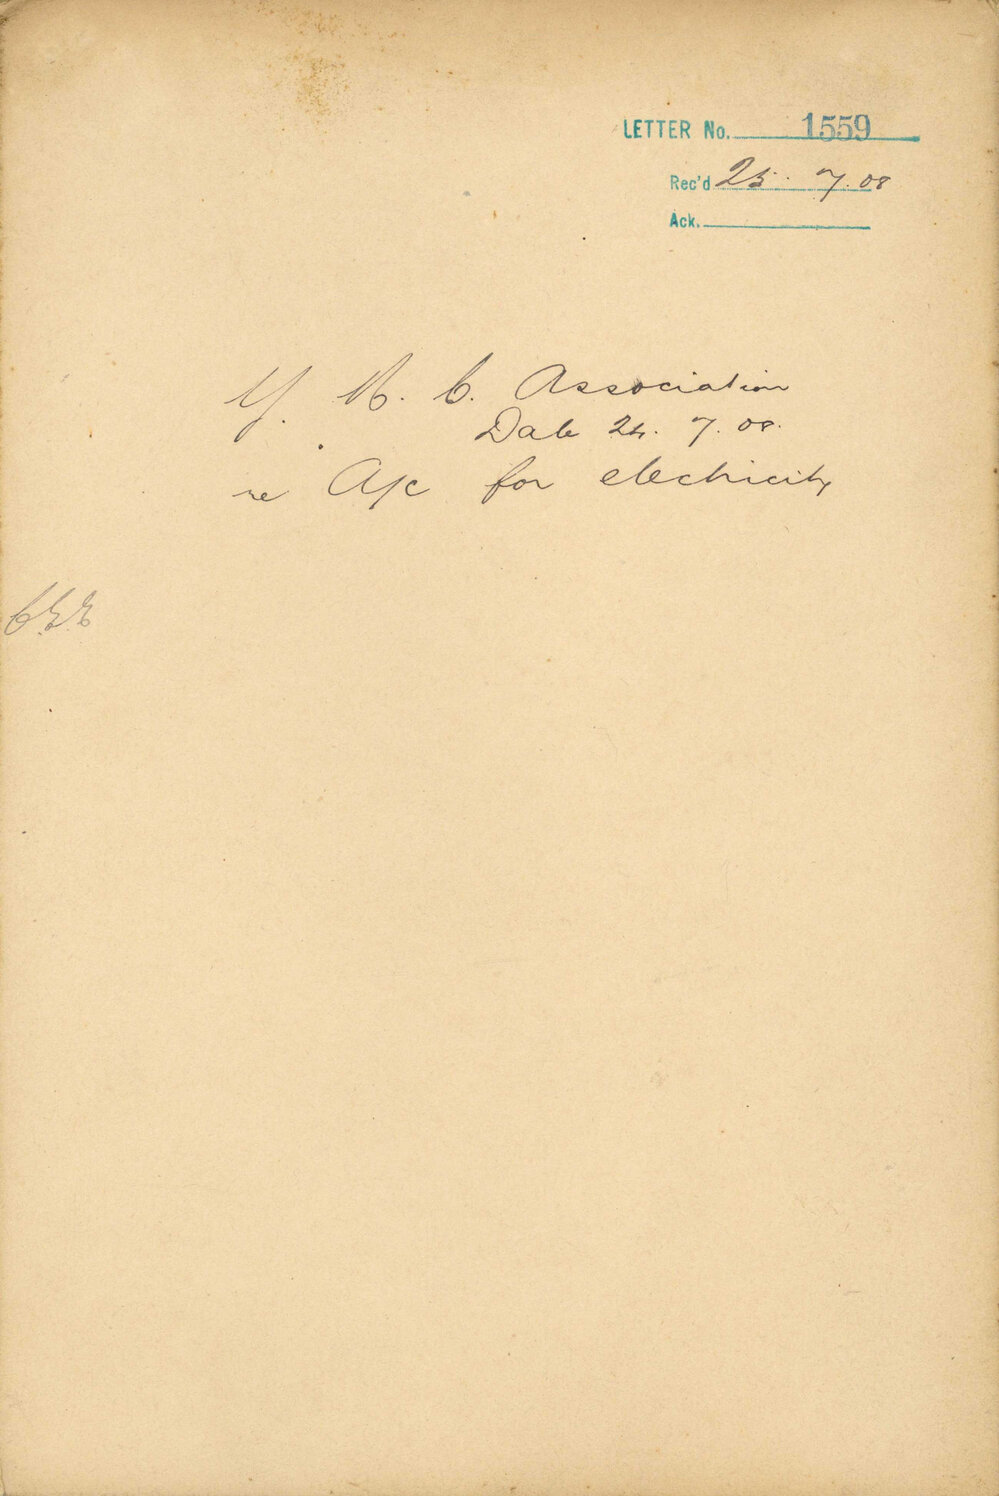 LETTER No. 1559
Rec'd 25. 7. 08
Ack.
Y. M. C. Association
Date 24. 7. 08.
re A/c for electricity